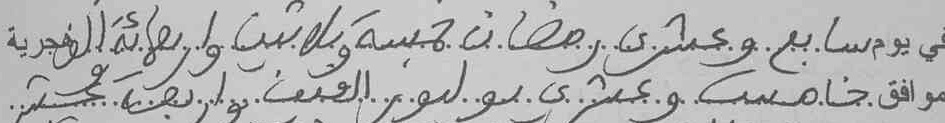 في يوم سابع وعشرى رمضان خمسة وثلاثين واربعمائة الهجرية
موافق خامست وعشرى يوليوز الفين واربعة عشر